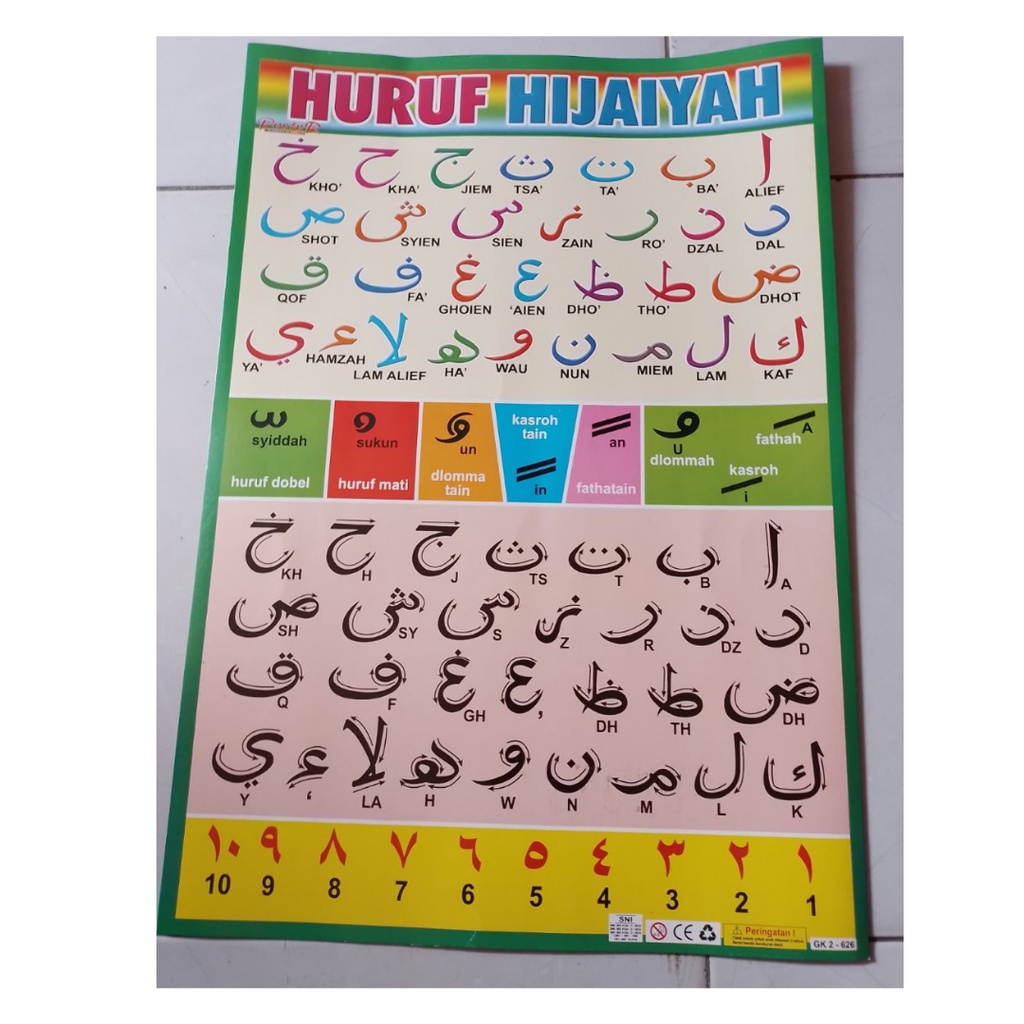 HURUF HIJAIYAH
ا ب ت ث ج ح خ
ALIEF BA' TA' TSA' JIEM KHA' KHO'
د ذ ر ز س ش ص
DAL DZAL RO' ZAIN SIEN SYIEN SHOT
ض ط ظ ع غ ف ق
DHOT THO' DHO' 'AIEN GHOIEN FA' QOF
ك ل م ن و ه لا ء ي
KAF LAM MIEM NUN WAU HA' LAM ALIEF HAMZAH YA'
A
fathah
kasroh
i
U
dlommah
an
fathatain
kasroh
tain
in
un
dlomma
tain
sukun
huruf mati
syiddah
huruf dobel
ا ب ت ث ج ح خ
A B T TS J H KH
د ذ ر ز س ش ص
D DZ R Z S SY SH
ض ط ظ ع غ ف ق
DH TH DH ‚ GH F Q
ك ل م ن و ه لا ء ي
K L M N W H LA ‘ Y
١ ٢ ٣ ٤ ٥ ٦ ٧ ٨ ٩ ١٠
1 2 3 4 5 6 7 8 9 10
SNI
CE
Peringatan !
GK 2 - 626